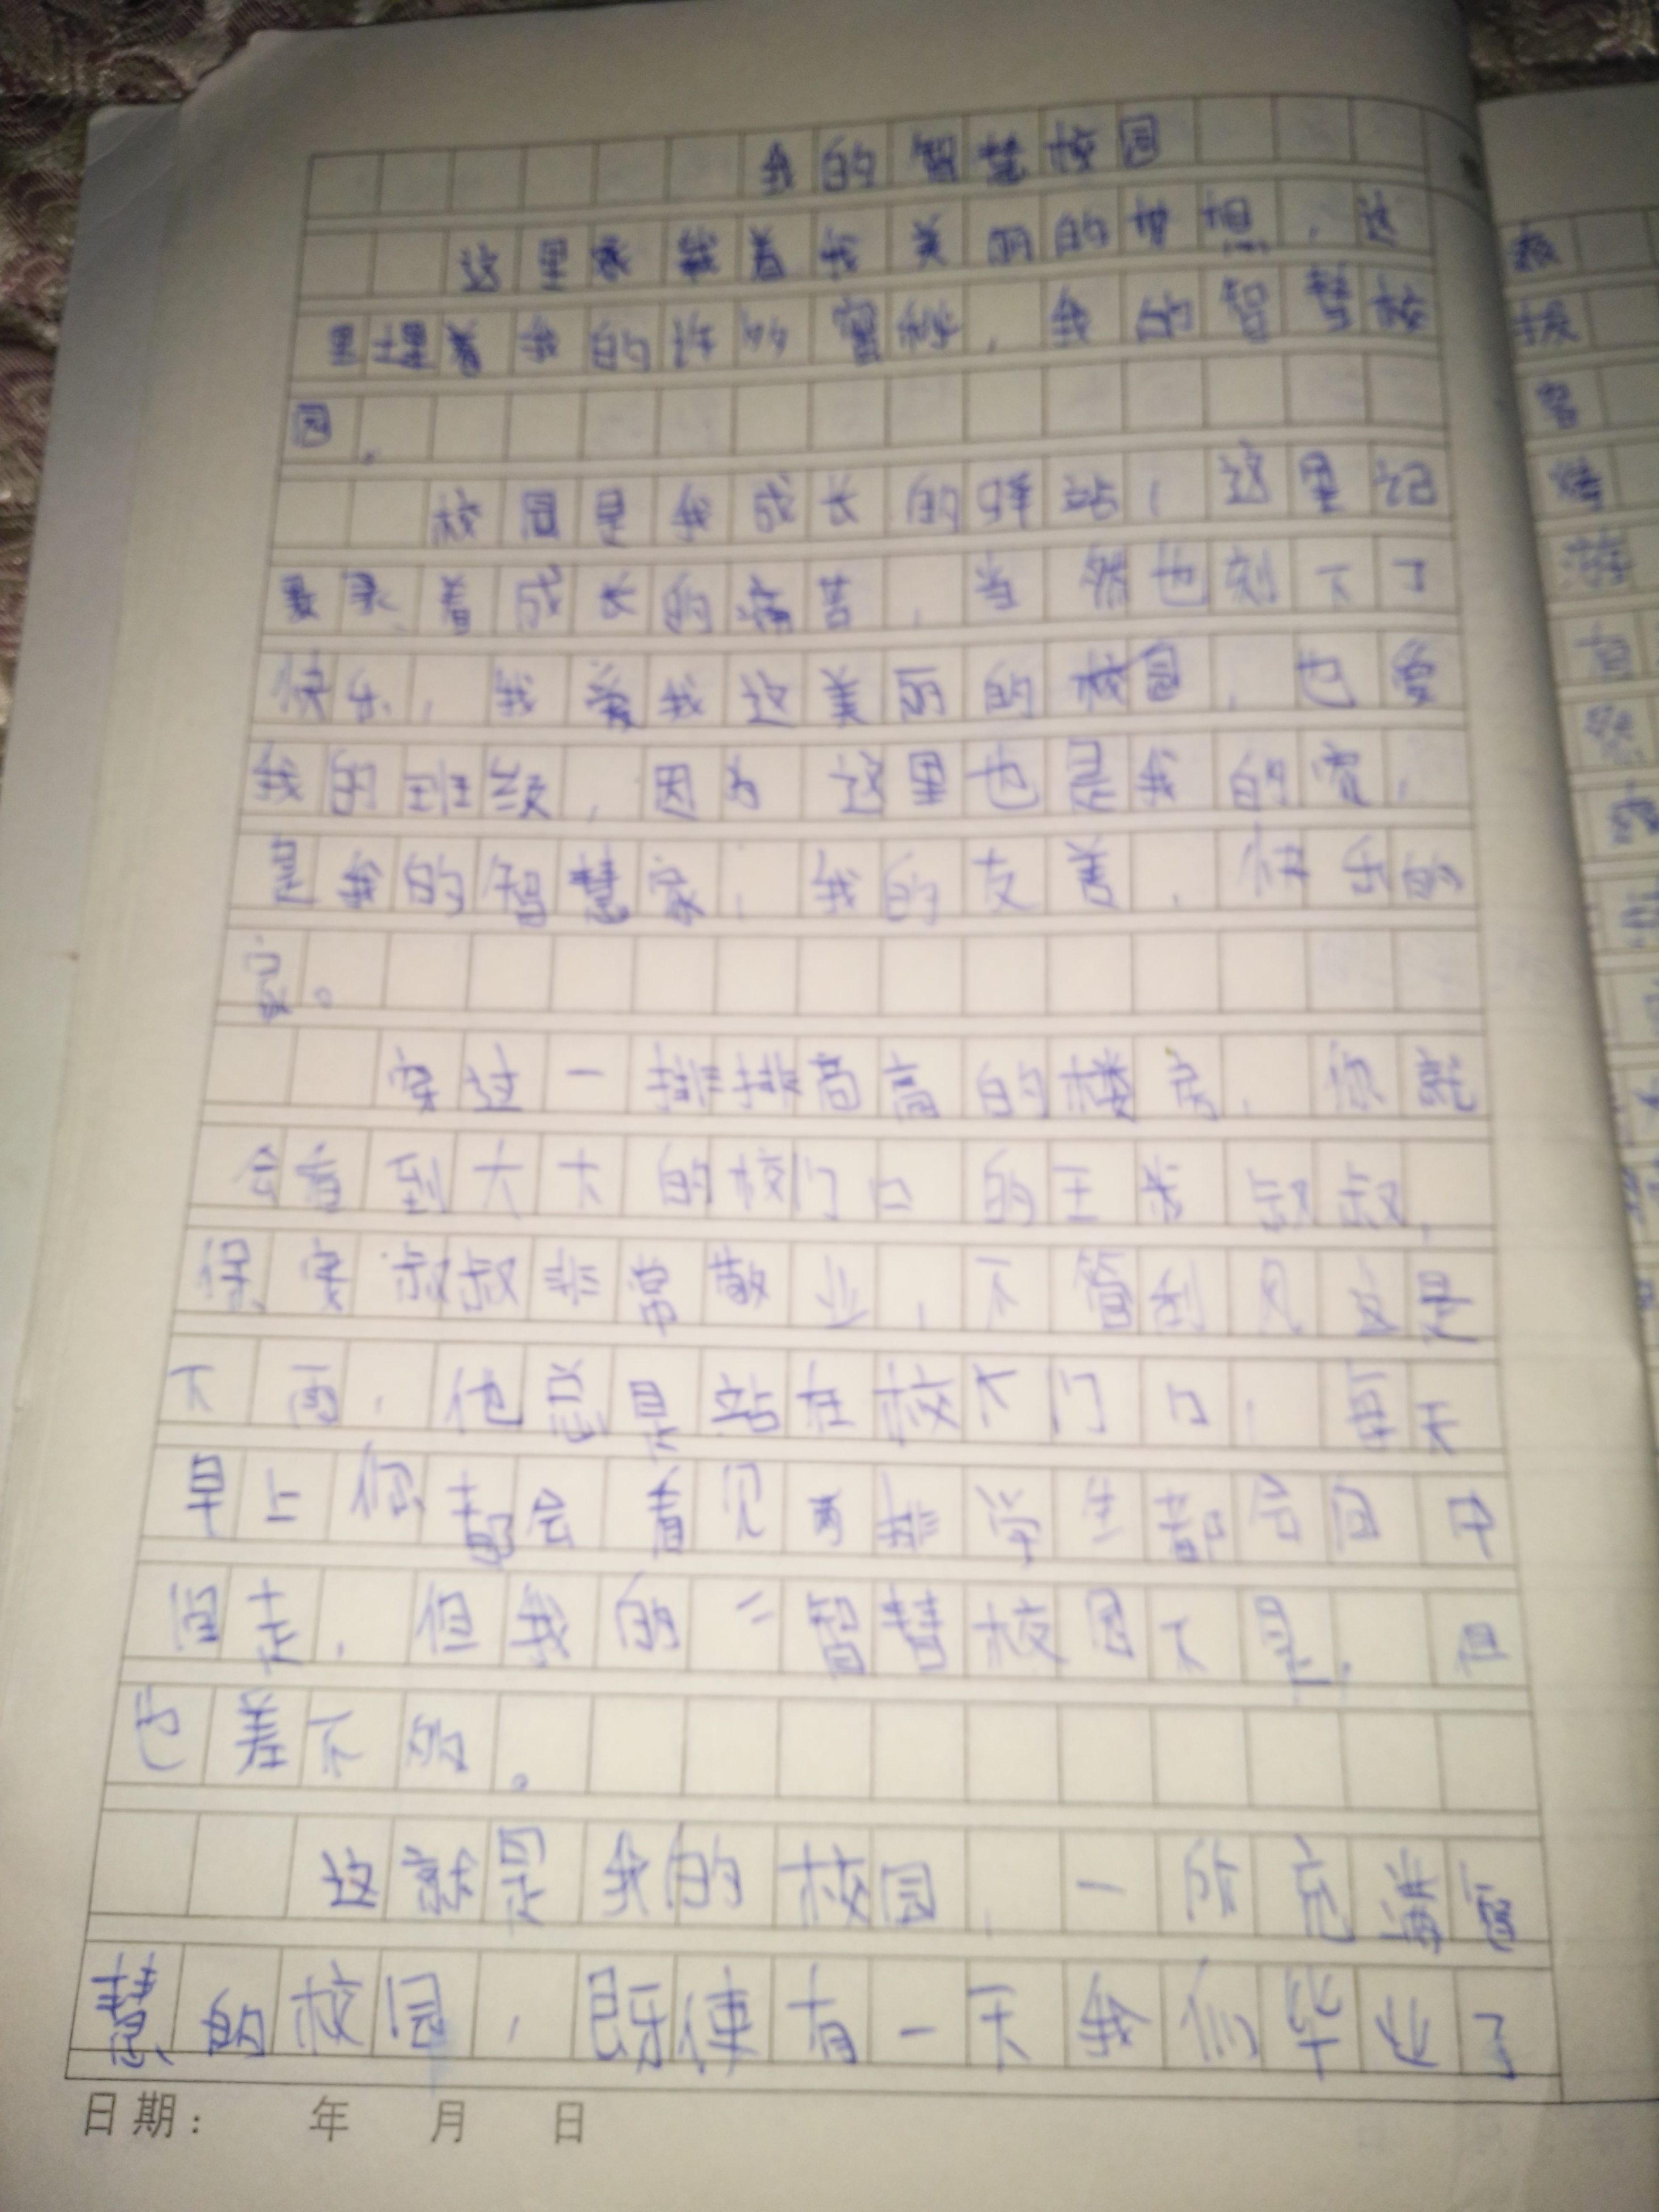 我的智慧校园
这里承载着我美丽的梦想，这
里埋着我的许多蜜秘，我的智慧校
园。
校园是我成长的驿站，这里记
录着成长的痛苦，当然也刻下了
快乐，我爱我这美丽的校园，也爱
我的班级，因为这里也是我的家，
是我的智慧家，我的友善，快乐的
家。
穿过一排排高高的楼房，你就
会看到大大的校门口的王米叔叔，
保安叔叔非常敬业，不管刮风还是
下雨，他总是站在校大门口，每天
早上你都会看见两排学生都会向中
间走，但我的二智慧校园不是，但
也差不多。
这就是我的校园，一所充满智
慧的校园，既使有一天我们毕业了
日期： 年 月 日